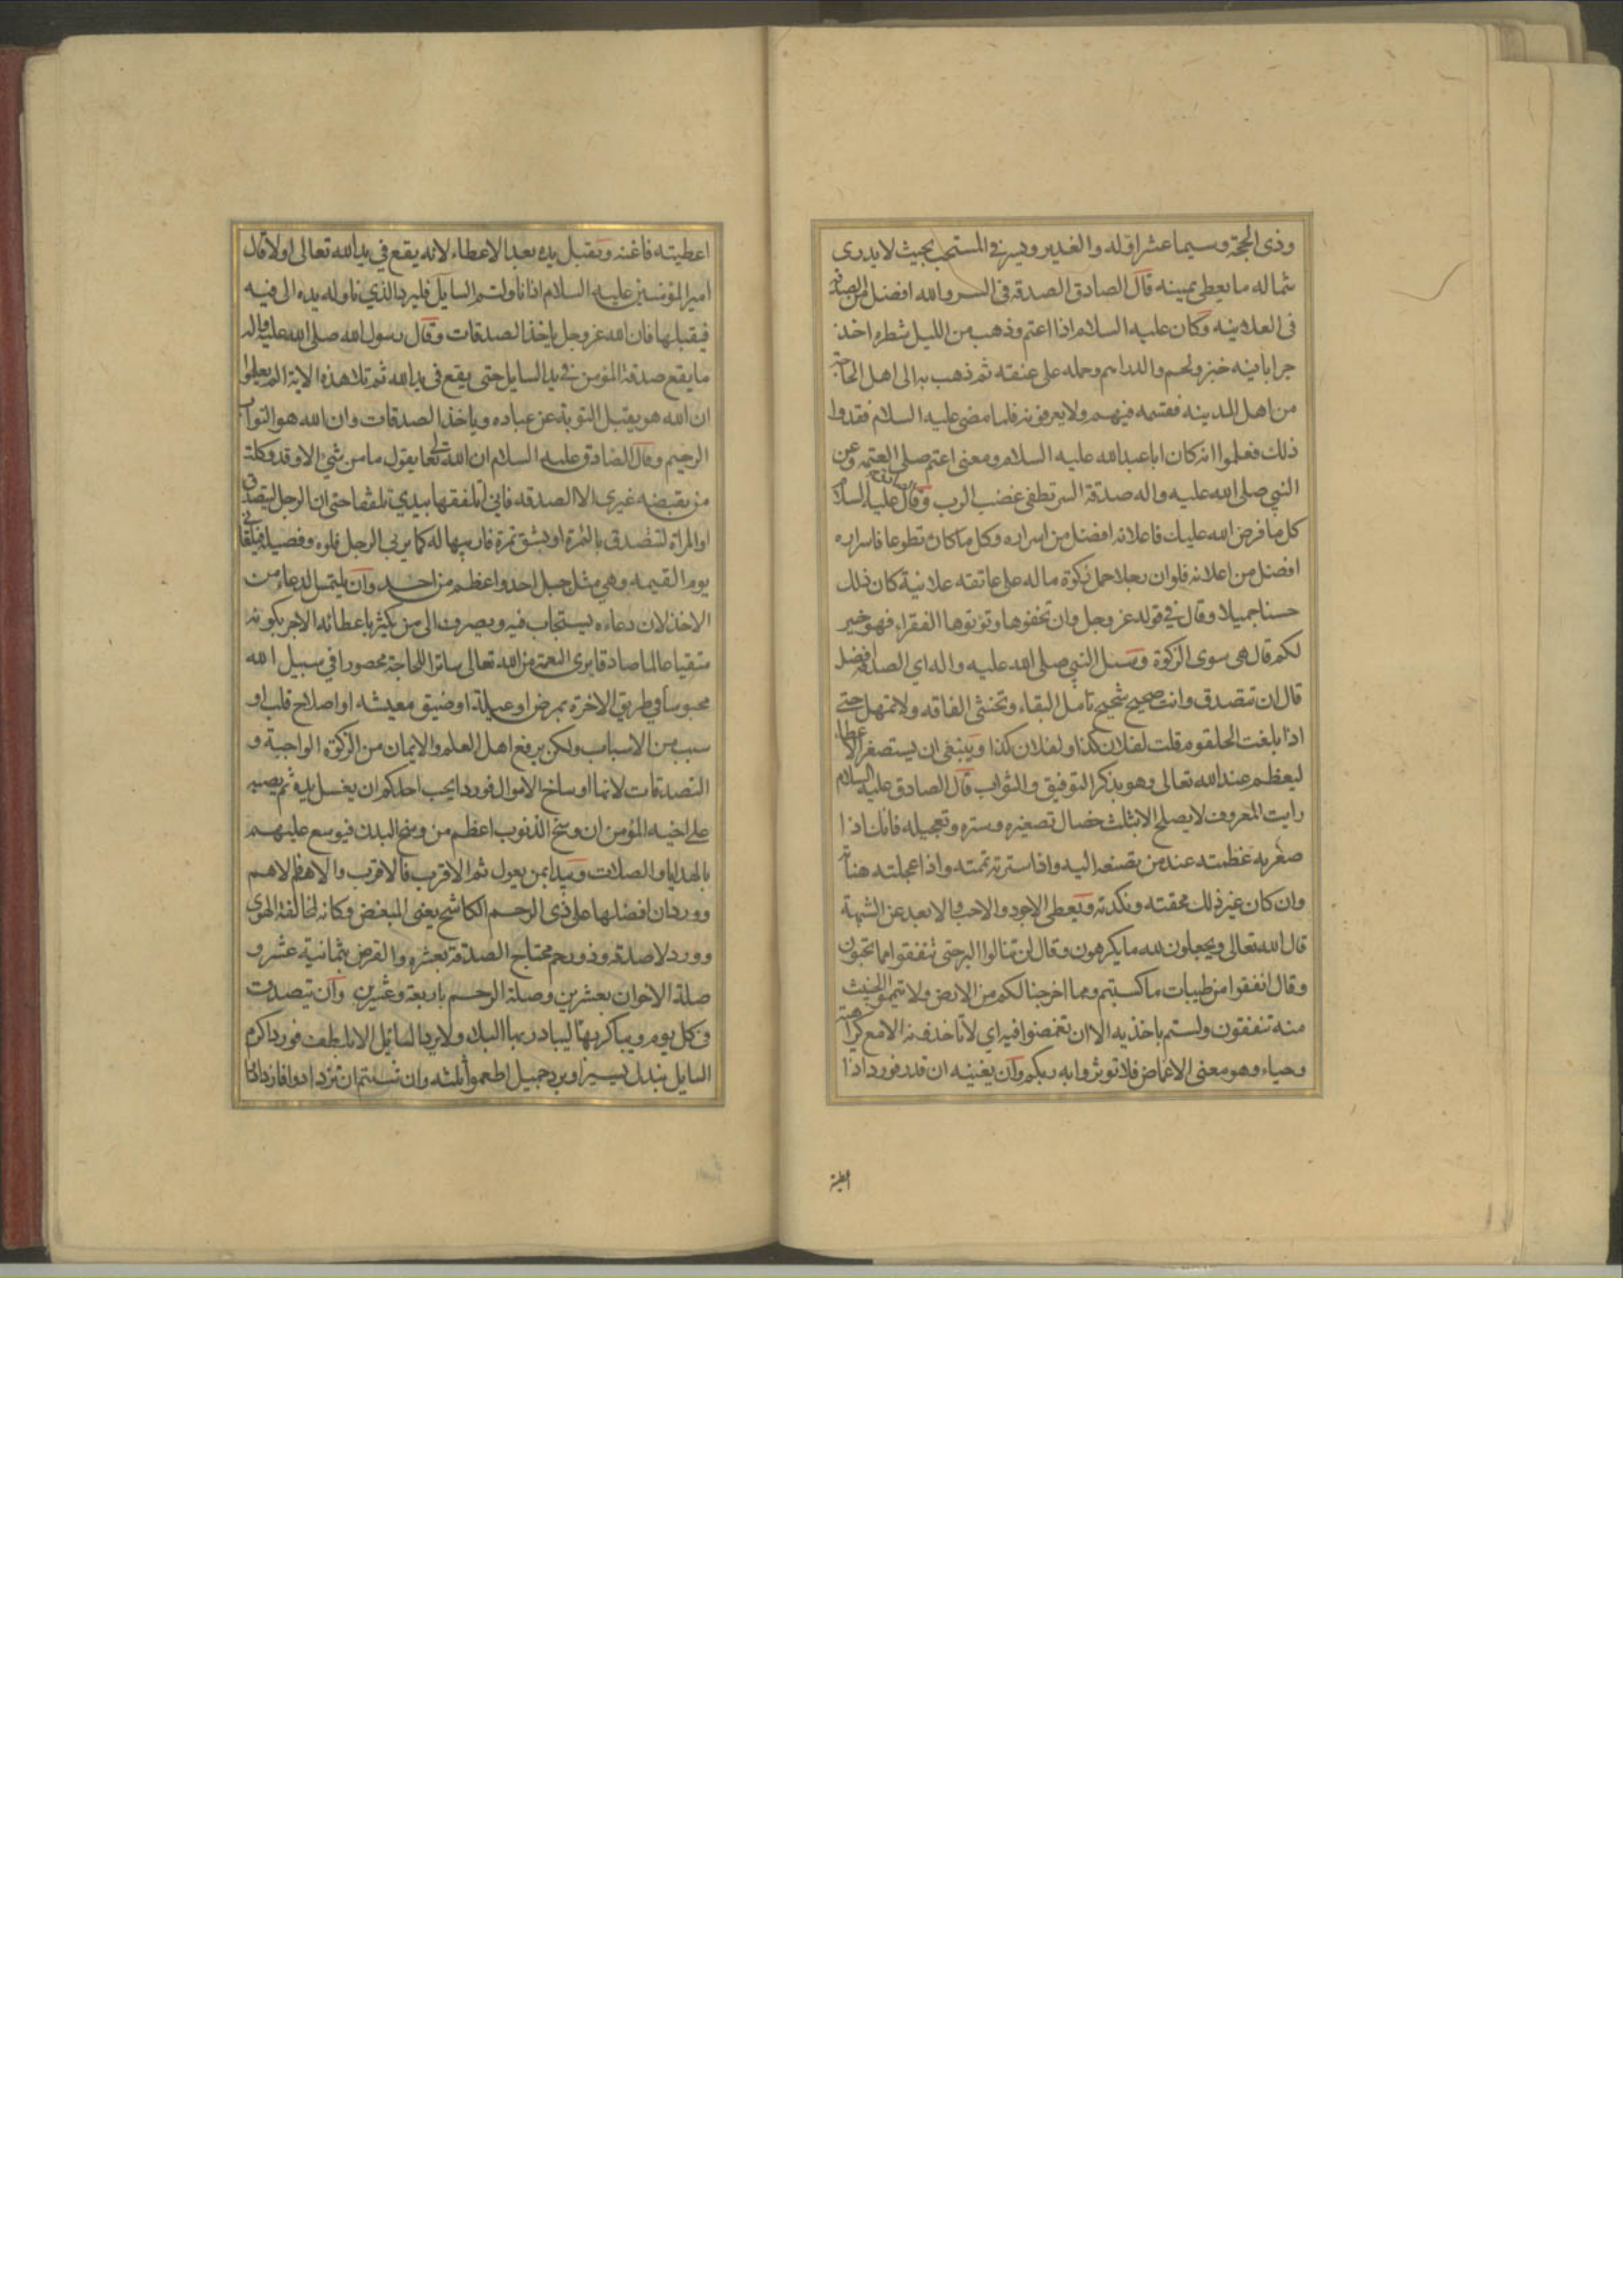 وذى الحجة وسيما عشر اوله والغدير ويسر في المستحب بحيث لا يدرى
شماله ما يعطى يمينه قال الصادق الصدقة فى السر والله افضل من الصدقة
فى العلانية وكان عليه السلام اذا اعتم وذهب من الليل شطره اخذ
جرابا فيه خبز ولحم والدراهم وحمله على عنقه ثم ذهب به الى اهل الحاجة
من اهل المدينه فقسمه فيهم ولا يعرفونه فلما مضى عليه السلام فقدوا
ذلك فعلموا انه كان ابا عبد الله عليه السلام ومعنى اعتم صلى العتمه وعن
النبي صلى الله عليه واله صدقة السر تطفى غضب الرب وقال عليه السلام
كل ما فرض الله عليك فاعلانه افضل من اسراره وكل ما كان تطوعا فاسراره
افضل من اعلانه فلو ان رجلا حمل زكوة ماله على عاتقه علانية كان ذلك
حسنا جميلا وقال في قوله عز وجل وان تخفوها وتؤتوها الفقراء فهو خير
لكم قال هى سوى الزكوة وسئل النبي صلى الله عليه واله اى الصدقة افضل
قال ان تتصدق وانت صحيح شحيح تامل البقاء وتخشى الفاقه ولا تمهل حتى
اذا بلغت الحلقوم قلت لفلان كذا ولفلان كذا وينبغى ان يستصغر الاعطاء
ليعظم عند الله تعالى وهو يذكر التوفيق والثواب قال الصادق عليه السلام
رايت المعروف لا يصلح الا بثلث خصال تصغيره وستره وتعجيله فانك اذا
صغرته عظمته عند من تصنعه اليه واذا سترته تممته واذا عجلته هناته
وان كان غير ذلك محقته ونكدته ويعطى الاجود والاحب والابعد عن الشبهة
قال الله تعالى ويجعلون لله ما يكرهون وقال لن تنالوا البر حتى تنفقوا مما تحبون
وقال انفقوا من طيبات ما كسبتم ومما اخرجنا لكم من الارض ولا تيمموا الخبيث
منه تنفقون ولستم باخذيه الا ان تغمضوا فيه اي لا تاخذونه الا مع كراهية
وحياء وهو معنى الاغماض فلا توثروا به ربكم وان يغنيه ان قدر فورد اذا
اعطيته
اعطيته فاغنه وتقبل يده بعد الاعطاء لانه يقع في يد الله تعالى اولا قال
امير المؤمنين عليه السلام اذا ناولتم السايل فليرد الذي ناوله يده الى فيه
فيقبلها فان الله عز وجل ياخذ الصدقات وقال رسول الله صلى الله عليه واله
ما يقع صدقة المؤمن في يد السايل حتى يقع فى يد الله ثم تلا هذه الاية الم يعلموا
ان الله هو يقبل التوبة عن عباده وياخذ الصدقات وان الله هو التواب
الرحيم وقال الصادق عليه السلام ان الله تعالى يقول ما من شئ الا وقد وكلت
من يقبضه غيرى الا الصدقه فاني اتلفقها بيدي تلقفا حتى ان الرجل ليتصدق
او المراة لتتصدق بالتمرة او بشق تمرة فاربيها له كما يربي الرجل فلوه وفصيله فيلقانى
يوم القيمه وهي مثل جبل احد واعظم من احد وان يلتمس الدعاء من
الاخذ لان دعاءه يستجاب فيه ويصرف الى من يكثر باعطائه الاجر بكونه
متقيا عالما صادقا يرى النعمة من الله تعالى ساترا للحاجة محصورا في سبيل الله
محبوسا في طريق الاخرة بمرض او عيلة او ضيق معيشه او اصلاح قلب او
سبب من الاسباب ولكن يرفع اهل العلم والايمان من الزكوة الواجبة و
التصدقات لانها اوساخ الاموال فورد ايحب احدكم ان يغسل يده ثم يصبه
على اخيه المؤمن ان وسخ الذنوب اعظم من وسخ البدن فيوسع عليهم
بالهدايا والصلات ويبدا بمن يعول ثم الاقرب فالاقرب والاهم فالاهم
وورد ان افضلها على ذى الرحم الكاشح يعنى المبغض وكانه لمخالفة الهوى
وورد لا صدقه وذو رحم محتاج الصدقة بعشره والقرض بثمانية عشر و
صلة الاخوان بعشرين وصلة الرحم باربعة وعشرين وان يتصدق
فى كل يوم ويباكر بها ليبادر بها البلاء ولا يرد السائل الا بلطف فورد اكرم
السايل ببذل يسير او برد جميل اطعموا ثلثه وان شئتم ان تزدادوا فازدادوا